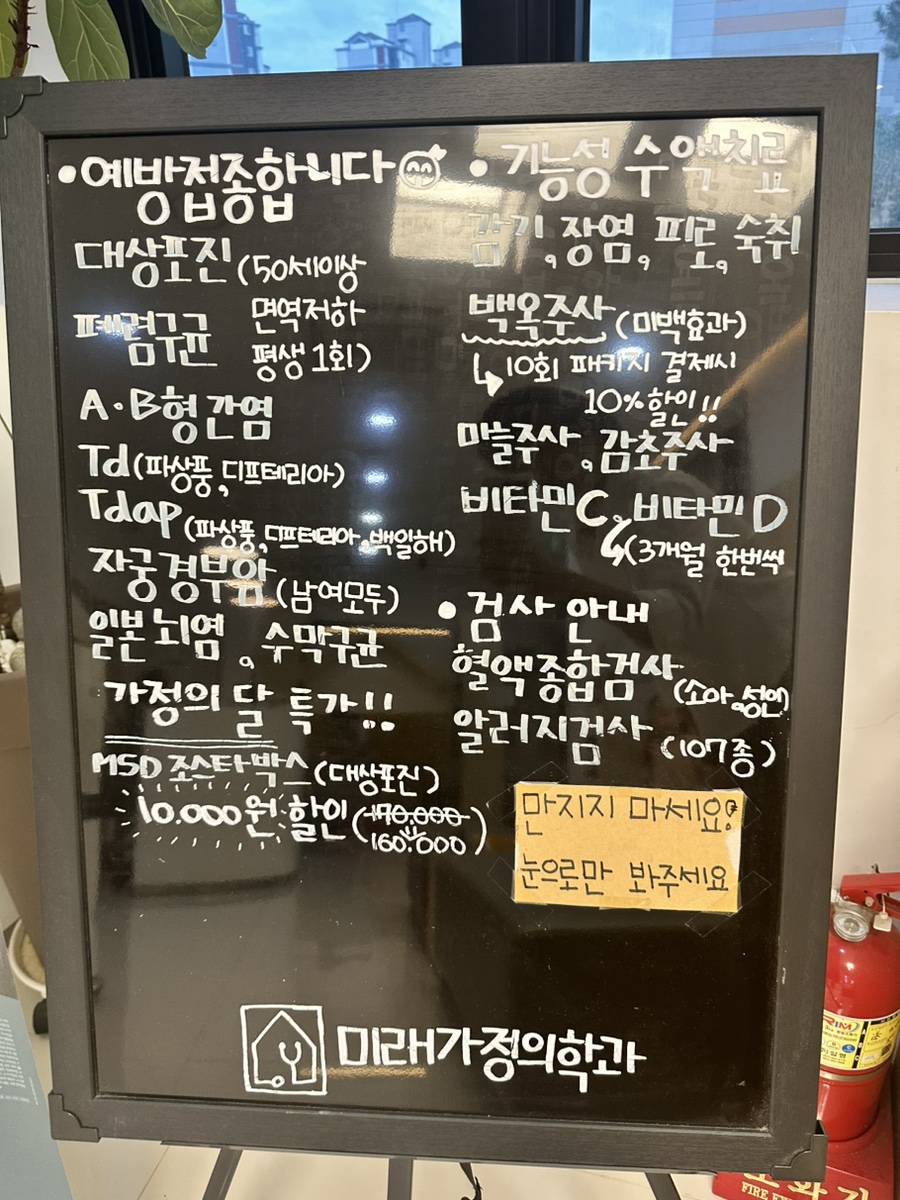 • 예방접종합니다
대상포진 (50세이상
폐렴구균 면역저하
평생 1회)
A·B형 간염
Td (파상풍, 디프테리아)
Tdap (파상풍, 디프테리아, 백일해)
자궁경부암 (남여모두)
일본뇌염, 수막구균
가정의 달 특가!!
MSD 조스타박스 (대상포진)
10.000원 할인 (170.000
160.000)
• 기능성 수액치료
감기, 장염, 피로, 숙취
백옥주사 (미백효과)
↳ 10회 패키지 결제시
10% 할인!!
마늘주사, 감초주사
비타민C, 비타민D
(3개월 한번씩
• 검사 안내
혈액종합검사 (소아, 성인)
알러지검사 (107종)
만지지 마세요!
눈으로만 봐주세요
미래가정의학과
소화기
FIRE